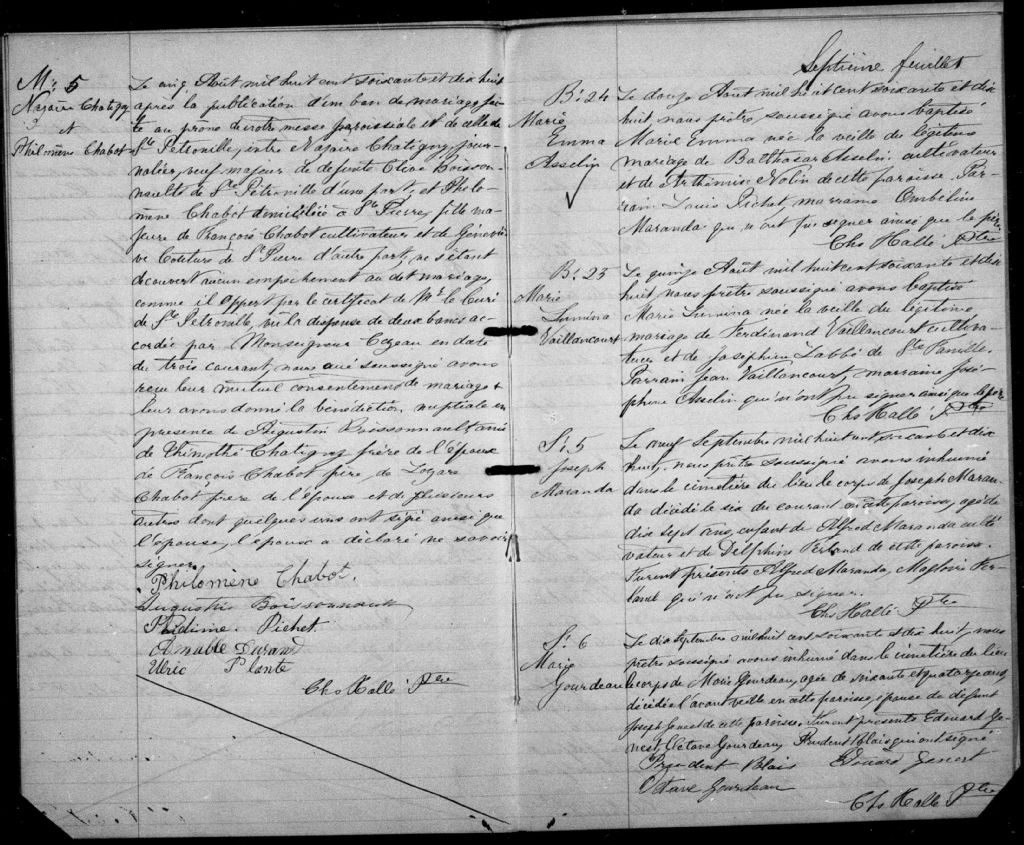 M: 5
Nazaire Chatigny
et
Philomène Chabot
Le cinq Août mil huit cent soixante et dix huit
après la publication d'un ban de mariage fai-
te au prone de notre messe paroissiale et de celle de
Ste Pétronille, entre Nazaire Chatigny, jour-
nalier, veuf majeur de defunte Boisson-
neault de Ste Pétronille d'une part, et Philo-
mène Chabot domiciliée à St Pierre, fille ma-
jeure de François Chabot cultivateur et de Géneviè-
ve Couture de St Pierre d'autre part, ne s'étant
découvert aucun empêchement au dit mariage,
comme il appert par le certificat de Mr le Curé
de Ste Pétronille, vu la dispense de deux bancs ac-
cordée par Monseigneur Cazeau en date
du trois courant, nous curé soussigné avons
reçu leur mutuel consentement de mariage &
leur avons donné la bénédiction nuptiale en
présence de Augustin Boissonnault ami
de Thimothé Chatigny frère de l'époux
de François Chabot père de Lazare
Chabot frère de l'épouse et de plusieurs
autres dont quelques uns ont signé ainsi que
l'épouse, l'époux a déclaré ne savoir
signer.
Philomène Chabot.
Augustin Boissonnault
Phidime Pichet
Amable Durand
Ulric Plante
Chs Hallé Ptre
Septième feuillet
B: 24
Marie
Emma
Asselin
Le douze Août mil huit cent soixante et dix
huit, nous prêtre soussigné avons baptisé
Marie Emma née la veille du légitime
mariage de Balthasar Asselin cultivateur
et de Arthémise Nolin de cette paroisse. Par-
rain Louis Pichet, marraine Ombéline
Maranda qui n'ont pu signer ainsi que le père.
Chs Hallé Ptre
B: 25
Marie
Lumina
Vaillancourt
Le quinze Août mil huit cent soixante et dix
huit, nous prêtre soussigné avons baptisé
Marie Lumina née la veille du légitime
mariage de Ferdinand Vaillancourt cultiva-
teur et de Joséphine Labbé de Ste Famille.
Parrain Jean Vaillancourt, marraine José-
phine Asselin qui n'ont pu signer ainsi que le père
Chs Hallé Ptre
S: 5
Joseph
Maranda
Le neuf Septembre mil huit cent soixante et dix
huit, nous prêtre soussigné avons inhumé
dans le cimetière du lieu le corps de Joseph Maran-
da décédé le six du courant en cette paroisse, agé de
dix sept ans, enfant de Alfred Maranda culti-
vateur et de Delphine Ferland de cette paroisse.
Furent présents Alfred Maranda, Magloire Fer-
land qui n'ont pu signer.
Chs Hallé Ptre
S: 6
Marie
Gourdeau
Le dix septembre mil huit cent soixante et dix huit, nous
prêtre soussigné avons inhumé dans le cimetière du lieu
le corps de Marie Gourdeau, agée de soixante et quatorze ans,
décédée l'avant veille en cette paroisse, épouse de défunt
Joseph Genest de cette paroisse. Furent présents Edouard Ge-
nest, Octave Gourdeau, Prudent Blais qui ont signé
Prudent Blais Edouard Genest
Octave Gourdeau
Chs Hallé Ptre